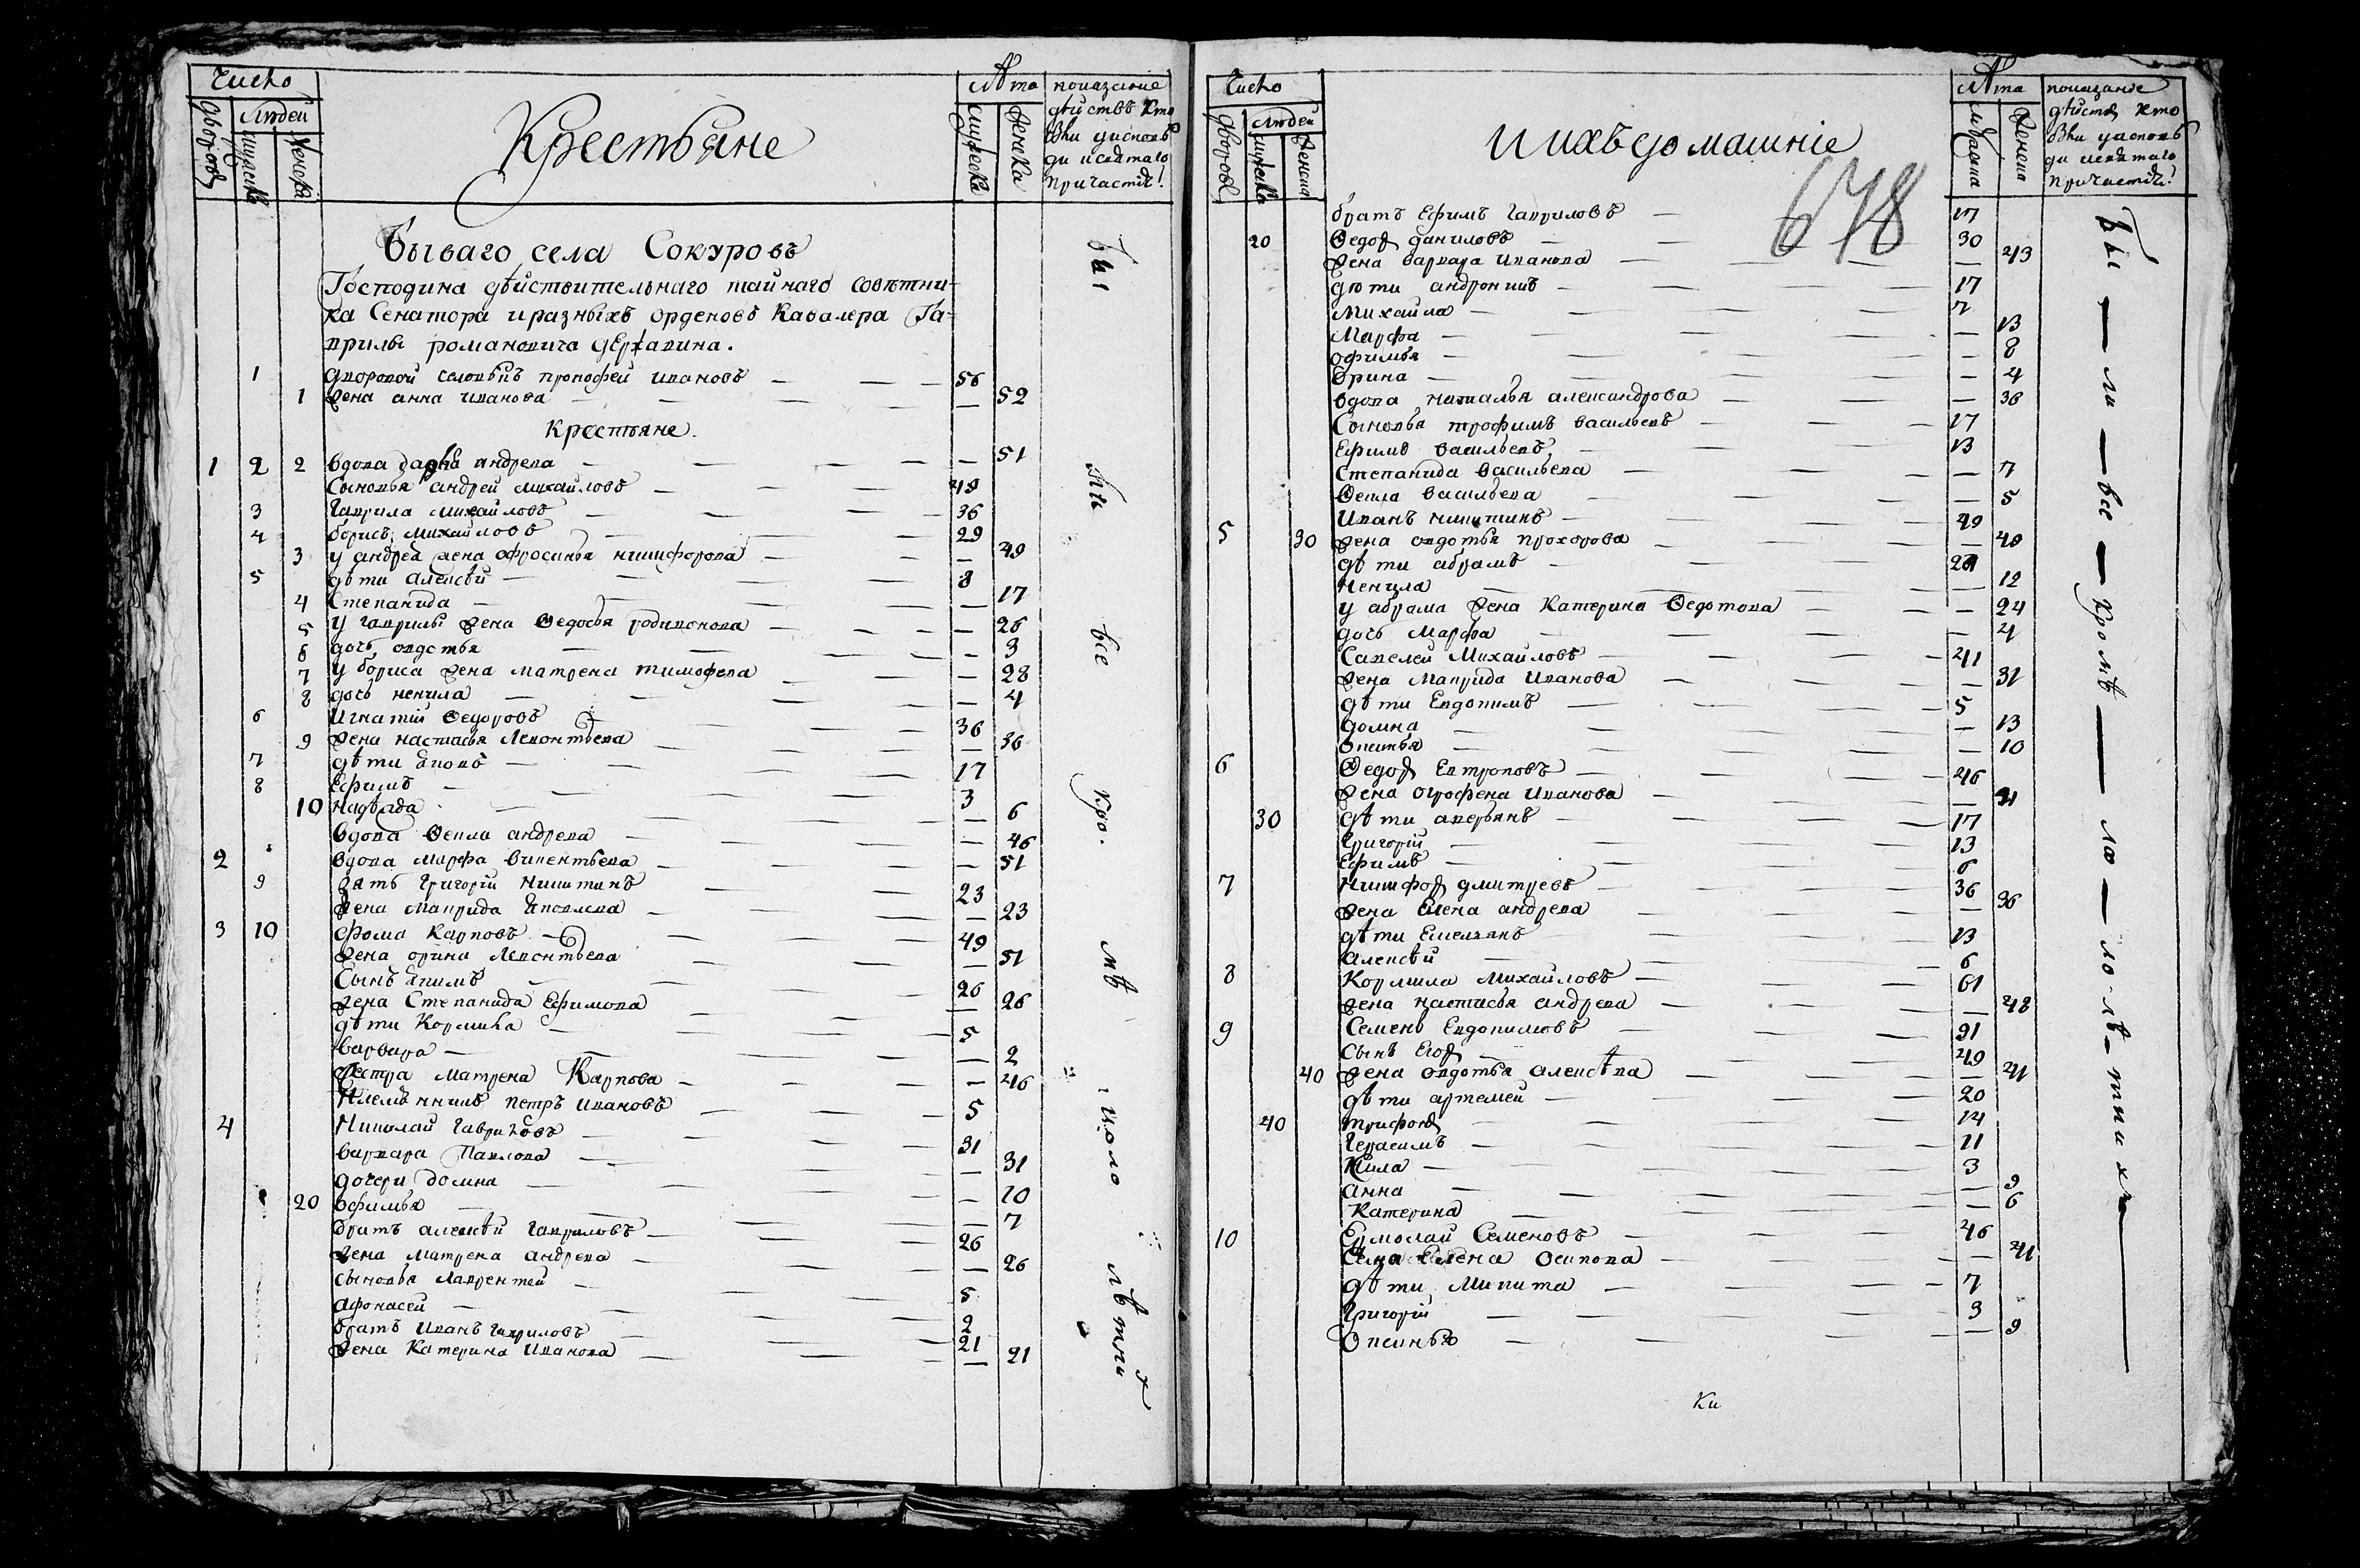 Число
Крестьяне
лѣта
показание
дворовъ
людей
мужеска
женска
мужеска
женска
дѣйствъ кто
былъ у исповѣ
ди и святаго
причастія
бываго села Сокуровъ
Господина дѣйствительнаго тайнаго совѣтни-
ка Сенатора и разныхъ орденовъ Кавалера Га-
врилы романовича державина.
1 дворовой прокофей ивановъ — — — 56
1 жена анна иванова — — — — 52
крестьяне.
1 2 2 вдова дарья андрева — — — — 51
Сыновья андрей михайловъ — — — 49
3 Гаврила михайловъ — — — 36
4 борисъ михайловъ — — — 29
3 у андрея жена офросинья никифорова — — — 49
5 дѣти алексѣй — — — — 8
4 Степанида — — — — — 17
5 у гаврилы жена Ѳедосья родионова — — — 26
6 дочь овдотья — — — — 3
7 у бориса жена матрена тимофева — — — 28
8 дочь ненила — — — — — 4
6 Игнатій Ѳедоровъ — — — 36
9 жена настасья Леонтьева — — — — 36
7 дѣти яковъ — — — — 17
8 Ефимъ — — — — 3
10 надѣжда — — — — — 6
вдова Ѳекла андрева — — — — 46
2 вдова марфа викентьева — — — — 51
9 зять григорій никитинъ — — — 23
жена маврида яковлева — — — — 23
3 10 фома карповъ — — — 49
жена орина Леонтьева — — — — 51
Сынъ якимъ — — — — 26
жена Степанида Ефимова — — — — 26
дѣти Кормила — — — — 5
варвара — — — — — 2
сестра матрена Карпова — — — — 46
племянникъ петръ ивановъ — — — 5
4 Николай гавриловъ — — — 31
варвара Павлова — — — — 31
дочери домна — — — — 10
20 офимья — — — — — 7
братъ алексѣй гавриловъ — — — 26
жена матрена андрева — — — — 26
сыновья лаврентей — — — 5
афонасей — — — — 2
братъ иванъ гавриловъ — — — 21
жена Катерина иванова — — — — 21
бы
ли
все
кро.
мѣ
мало
лѣтни
х
Число
и ихъ домашніе
лѣта
показание
дворовъ
людей
мужеска
женска
мужеска
женска
дѣйствъ кто
былъ у исповѣ
ди и святаго
причастія
678
братъ Ефимъ гавриловъ — 17
20 Ѳедоръ даниловъ — — — 30
жена варвара иванова — — — — 43
дѣти андроникъ — — — — 17
михайла — — — — 7
марфа — — — — — 13
офимья — — — — — 8
орина — — — — — 4
вдова наталья александрова — — — — 36
Сыновья трофимъ васильевъ — — — 17
Ефимъ васильевъ — — — 13
Степанида васильева — — — — 7
Ѳекла васильева — — — — 5
5 Иванъ никитинъ — — — 49
30 жена овдотья прохорова — — — — 40
дѣти абрамъ — — — —
Ненила — — — — — 12
у абрама жена Катерина Ѳедотова — — — 24
дочь марфа — — — — 4
Савелей Михайловъ — — — 41
жена маврида иванова — — — — 31
дѣти Евдокимъ — — — — 5
домна — — — — — 13
— — — — — 10
6 Ѳедоръ Евтроповъ — — — 46
жена огрофена иванова — — — —
30 дѣти аверьянъ — — — — 17
григорій — — — — 13
Ефимъ — — — — 6
7 никифоръ дмитревъ — — — 36
жена Елена андрева — — — — 36
дѣти Емельянъ — — — 13
алексѣй — — — — 6
8 Кормила михайловъ — — — 61
жена настасья андрева — — — — 48
9 Семенъ Евдокимовъ — — —
сынъ Егоръ — — — — 49
40 жена овдотья алексѣва — — — — 41
дѣти артемей — — — — 20
40 трифонъ — — — — 14
герасимъ — — — — 11
— — — — 3
анна — — — — — 9
катерина — — — — — 6
10 Ермолай Семеновъ — — — 46
жена Елена осипова — — — — 41
дѣти микита — — — — 7
григорій — — — — 3
оксинья — — — — — 9
бы — ли — все — кромѣ — ма — ло-лѣ-тних
ки